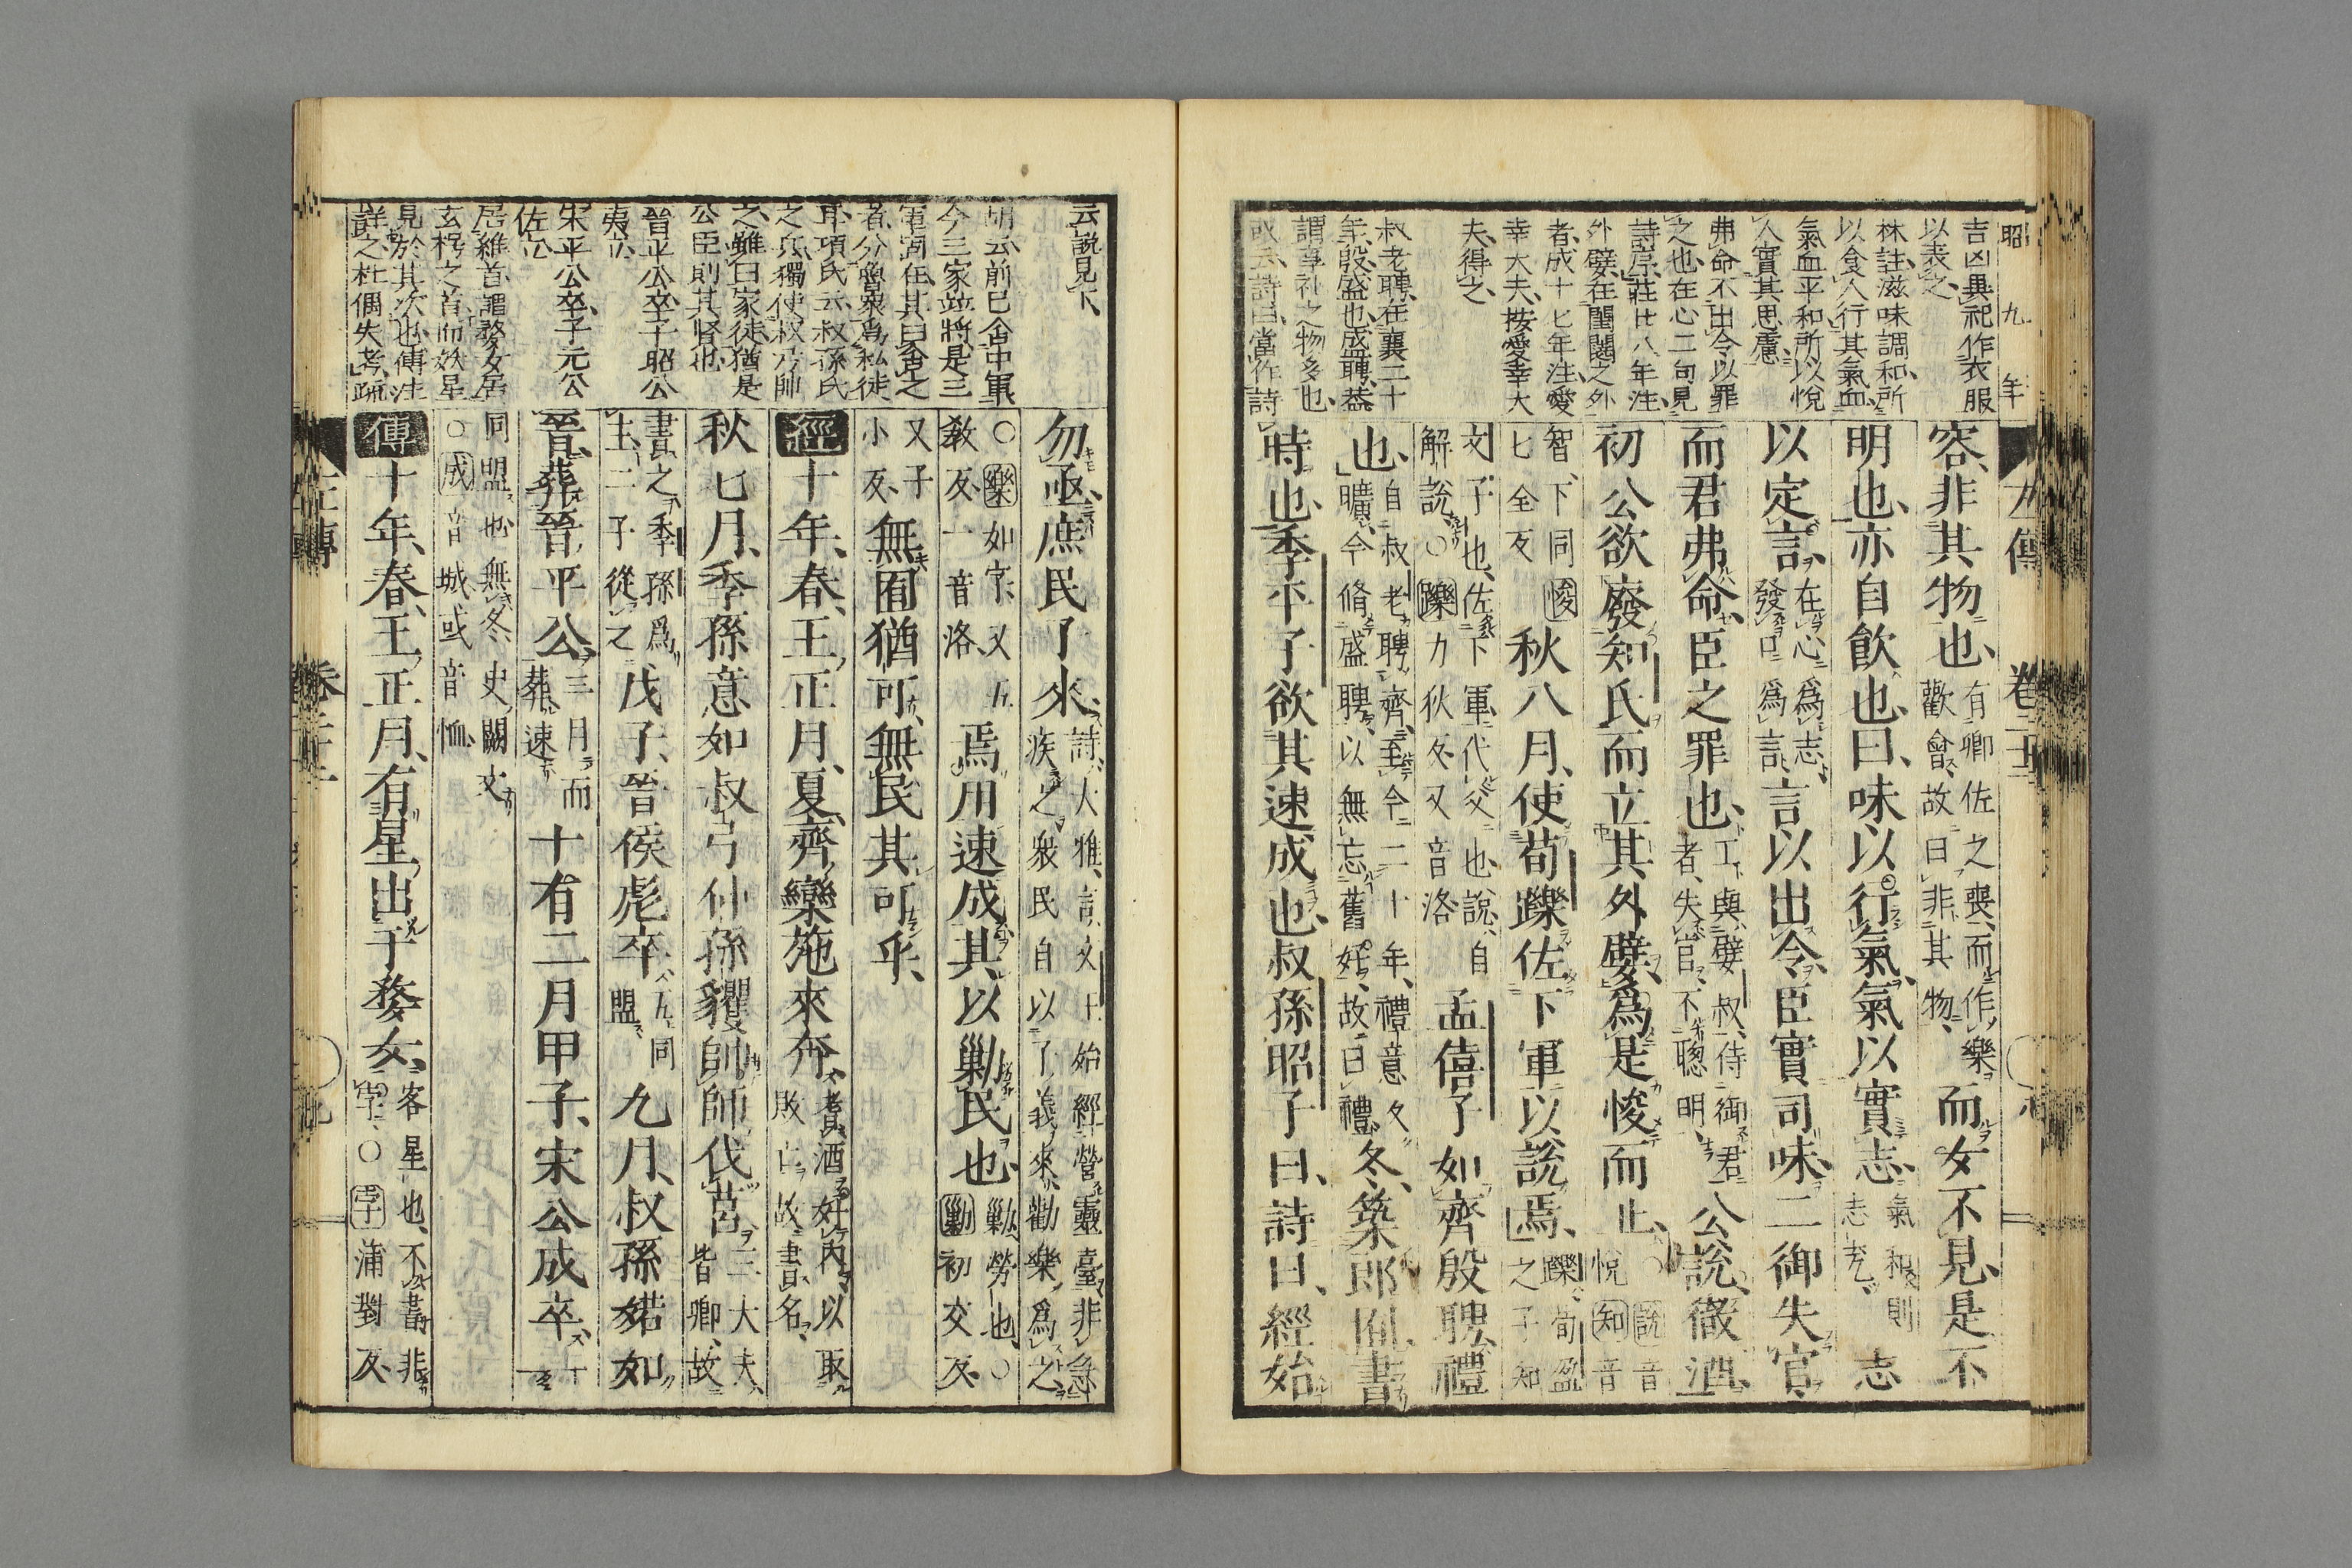 昭九年
左傳
卷二十二
吉凶異祀作衣服
以表之
林註滋味調和所
以食人行其氣血
氣血平和所以悅
人實其思慮
弗命不出令以罪
之也在心二句見
詩序莊廿八年注
外嬖在閨闥之外
者成十七年注愛
幸大夫按愛幸大
夫得之
叔老聘在襄二十
年殷盛也盛聘恭
謂享礼之物多也
或云詩曰當作詩
容、非其物也、有卿佐之喪、而作樂歡會、故曰非其物、而女不見、是不
明也、亦自飲也、曰、味以行氣、氣以實志、氣和則志充、志
以定言、在心爲志、發口爲言、言以出令、臣實司味、二御失官、
而君弗命、臣之罪也、工與嬖叔、侍御君者、失官、不聰明、公說、徹酒、
初公欲廢知氏、而立其外嬖、爲是悛而止、○說音悅知音
智、下同悛七全反秋八月、使荀躒佐下軍以說焉、躒荀盈之子知
文子也、佐下軍代父也、說、自解說、○躒力狄反又音洛孟僖子如齊殷聘、禮
也、自叔老聘齊、至今二十年、禮意久曠、今脩盛聘、以無忘舊好、故曰禮、冬、築郎囿、書
時也、季平子欲其速成也、叔孫昭子曰、詩曰、經始
云說見下
胡云前已舍中軍
今三家竝將是三
軍固在其曰舍之
者分魯衆爲私徒
耳項氏云叔孫氏
之兵獨使叔弓帥
之雖曰家徒猶是
公臣則其腎也
晉平公卒子昭公
夷立
宋平公卒子元公
佐立
居維首謂婺女居
玄枵之首而妖星
見於其次也傳注
詳之杜偶失考疏
勿亟、庶民子來、詩、大雅、言文王始經營靈臺、非急疾之、衆民自以子義來、勸樂爲之、
○樂如字、又五敎反一音洛焉用速成、其以勦民也、勦、勞也、○勦初交反、
又子小反無囿猶可、無民其可乎、
經十年、春、王正月、夏、齊欒施來奔、耆酒好內、以取敗亡、故書名、
秋七月、季孫意如、叔弓、仲孫貜帥師伐莒、三大夫、皆卿、故
書之季孫爲主、二子從之戊子、晉侯彪卒、五同盟、九月、叔孫婼如
晉、葬晉平公、三月而葬速十有二月甲子、宋公成卒、十一
同盟也無冬、史闕文○成音城或音恤
傳十年、春、王正月、有星出于婺女、客星也、不書、非孛、○孛蒲對反、
左傳
卷二十二